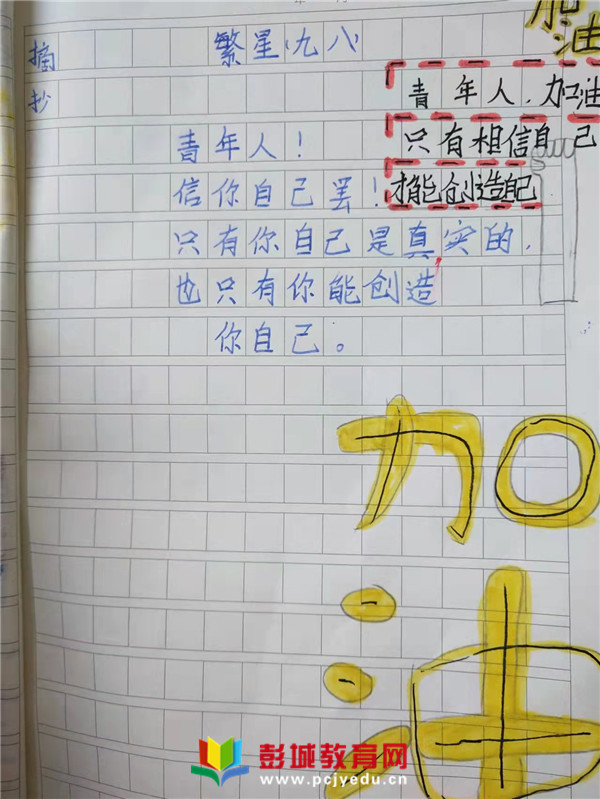 摘抄
繁星(九八)
青年人!
信你自己罢!
只有你自己是真实的,
也只有你能创造
你自己。
加油
青年人,加油
只有相信自己
才能创造自己
加
油
彭城教育网
www.pcjyedu.cn